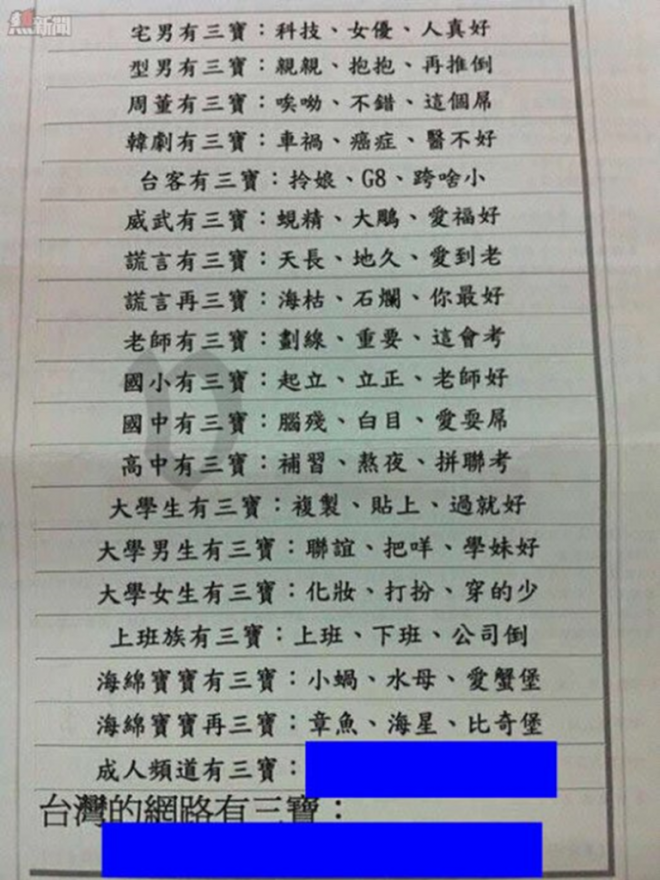 新聞
宅男有三寶：科技、女優、人真好
型男有三寶：親親、抱抱、再推倒
周董有三寶：唉呦、不錯、這個屌
韓劇有三寶：車禍、癌症、醫不好
台客有三寶：拎娘、G8、跨啥小
威武有三寶：蜆精、大鵰、愛福好
謊言有三寶：天長、地久、愛到老
謊言再三寶：海枯、石爛、你最好
老師有三寶：劃線、重要、這會考
國小有三寶：起立、立正、老師好
國中有三寶：腦殘、白目、愛耍屌
高中有三寶：補習、熬夜、拼聯考
大學生有三寶：複製、貼上、過就好
大學男生有三寶：聯誼、把咩、學妹好
大學女生有三寶：化妝、打扮、穿的少
上班族有三寶：上班、下班、公司倒
海綿寶寶有三寶：小蝸、水母、愛蟹堡
海綿寶寶再三寶：章魚、海星、比奇堡
成人頻道有三寶：
台灣的網路有三寶：